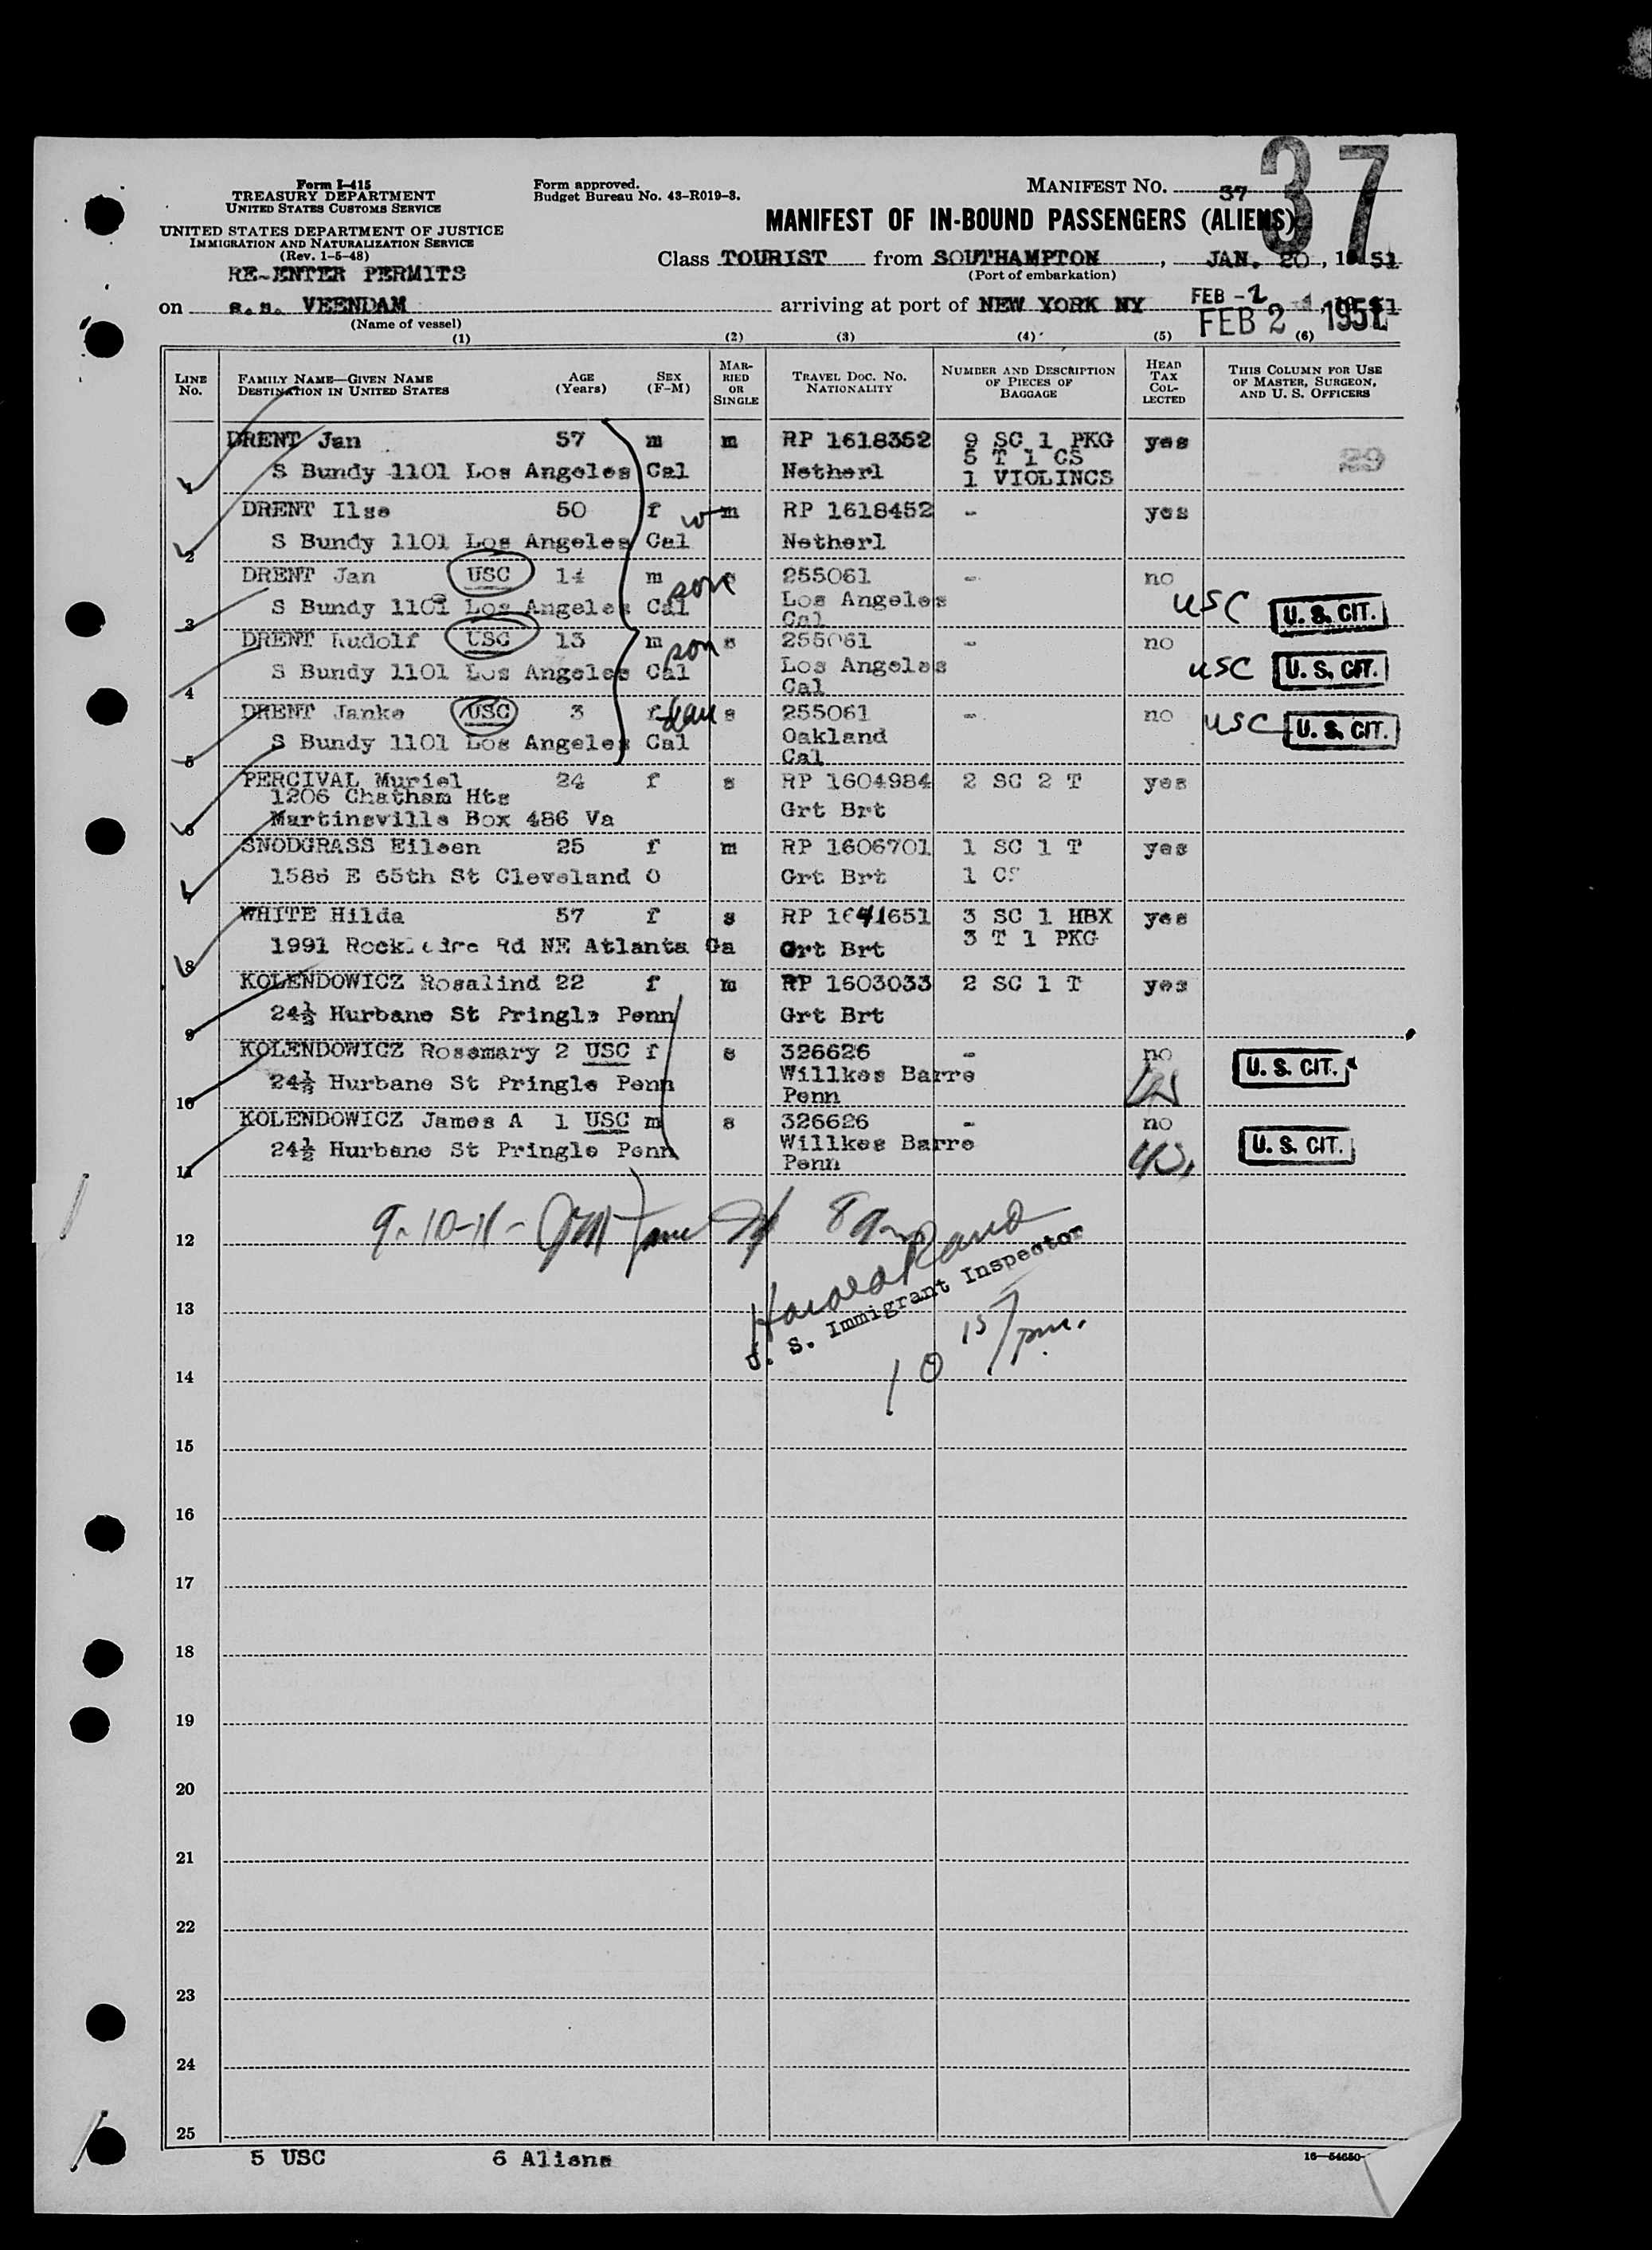 37
Form I-415
TREASURY DEPARTMENT
UNITED STATES CUSTOMS SERVICE
UNITED STATES DEPARTMENT OF JUSTICE
IMMIGRATION AND NATURALIZATION SERVICE
(Rev. 1-5-48)
RE-ENTER PERMITS
Form approved.
Budget Bureau No. 43-R019-3.
MANIFEST NO. 37
MANIFEST OF IN-BOUND PASSENGERS (ALIENS)
Class TOURIST from SOUTHAMPTON, JAN. 20, 1951
(Port of embarkation)
on s.s. VEENDAM arriving at port of NEW YORK NY FEB -2
FEB 2 1951
(Name of vessel)
(1) (2) (3) (4) (5) (6)
LINE No. FAMILY NAME—GIVEN NAME DESTINATION IN UNITED STATES AGE (Years) SEX (F-M) MARRIED OR SINGLE TRAVEL DOC. NO. NATIONALITY NUMBER AND DESCRIPTION OF PIECES OF BAGGAGE HEAD TAX COLLECTED THIS COLUMN FOR USE OF MASTER, SURGEON, AND U. S. OFFICERS
DRENT Jan 57 m m RP 1618352 9 SC 1 PKG yes 29
5 T 1 CS
1 S Bundy 1101 Los Angeles Cal Netherl 1 VIOLINCS
DRENT Ilse 50 f w m RP 1618452 - yes
2 S Bundy 1101 Los Angeles Cal Netherl
DRENT Jan USC 14 m son s 255061 - no
3 S Bundy 1101 Los Angeles Cal Los Angeles USC U. S. CIT.
Cal
DRENT Rudolf USC 13 m son s 255061 - no
4 S Bundy 1101 Los Angeles Cal Los Angeles USC U. S. CIT.
Cal
DRENT Janke USC 3 f dau s 255061 - no USC U. S. CIT.
5 S Bundy 1101 Los Angeles Cal Oakland
Cal
PERCIVAL Muriel 24 f s RP 1604984 2 SC 2 T yes
1206 Chatham Hts Grt Brt
6 Martinsville Box 486 Va
SNODGRASS Eileen 25 f m RP 1606701 1 SC 1 T yes
7 1586 E 65th St Cleveland O Grt Brt 1 CS
WHITE Hilda 57 f s RP 1641651 3 SC 1 HBX yes
3 T 1 PKG
8 1991 Rd NE Atlanta Ga Grt Brt
KOLENDOWICZ Rosalind 22 f m RP 1603033 2 SC 1 T yes
9 24½ Hurbane St Pringle Penn Grt Brt
KOLENDOWICZ Rosemary 2 USC f s 326626 - no U. S. CIT.
10 24½ Hurbane St Pringle Penn Willkes Barre
Penn
KOLENDOWICZ James A 1 USC m s 326626 - no
11 24½ Hurbane St Pringle Penn Willkes Barre U. S. CIT.
Penn
9-10-11-
12
Harold Rand
U. S. Immigrant Inspector
13
10 15/pm.
14
15
16
17
18
19
20
21
22
23
24
25
5 USC 6 Aliens
16—54650-